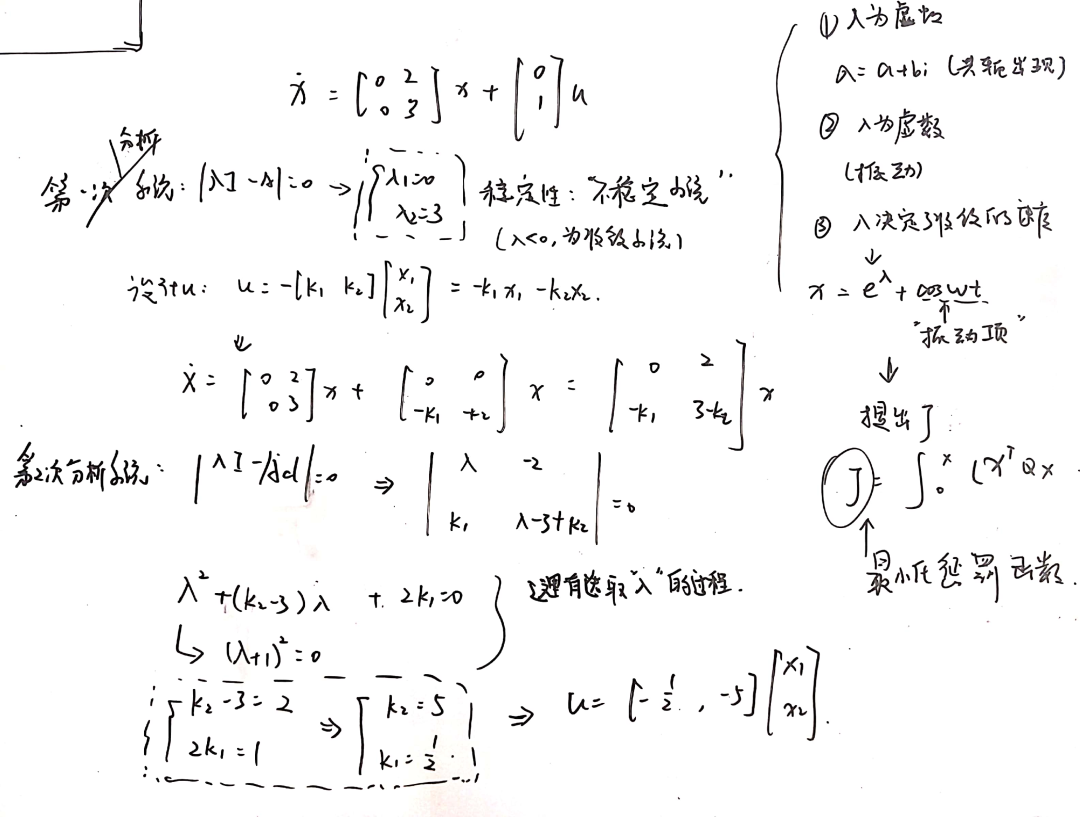 ẋ = [0 2; 0 3] x + [0; 1] u
分析
第一次系统: |λI - A| = 0 → {λ₁=0, λ₂=3} 稳定性: "不稳定系统"
(λ<0, 为收敛系统)
设计u: u = -[k₁ k₂][x₁; x₂] = -k₁x₁ - k₂x₂.
↓
ẋ = [0 2; 0 3] x + [0 0; -k₁ +2] x = [0 2; -k₁ 3-k₂] x
第2次分析系统: |λI - Acl| = 0 ⇒ |λ -2; k₁ λ-3+k₂| = 0
λ² + (k₂-3)λ + 2k₁ = 0
↳ (λ+1)² = 0
这里有选取"λ"的过程.
{k₂-3=2, 2k₁=1} ⇒ {k₂=5, k₁=1/2.} ⇒ u = [-1/2, -5][x₁; x₂].
① λ为虚数
a = a+bi (共轭出现)
② λ为虚数
(振动)
③ λ决定了收敛的速度
↓
x = e^λ + cos wt
↑
"振动项"
↓
提出了
J = ∫₀^x (xᵀQx
↑
最小化惩罚函数.